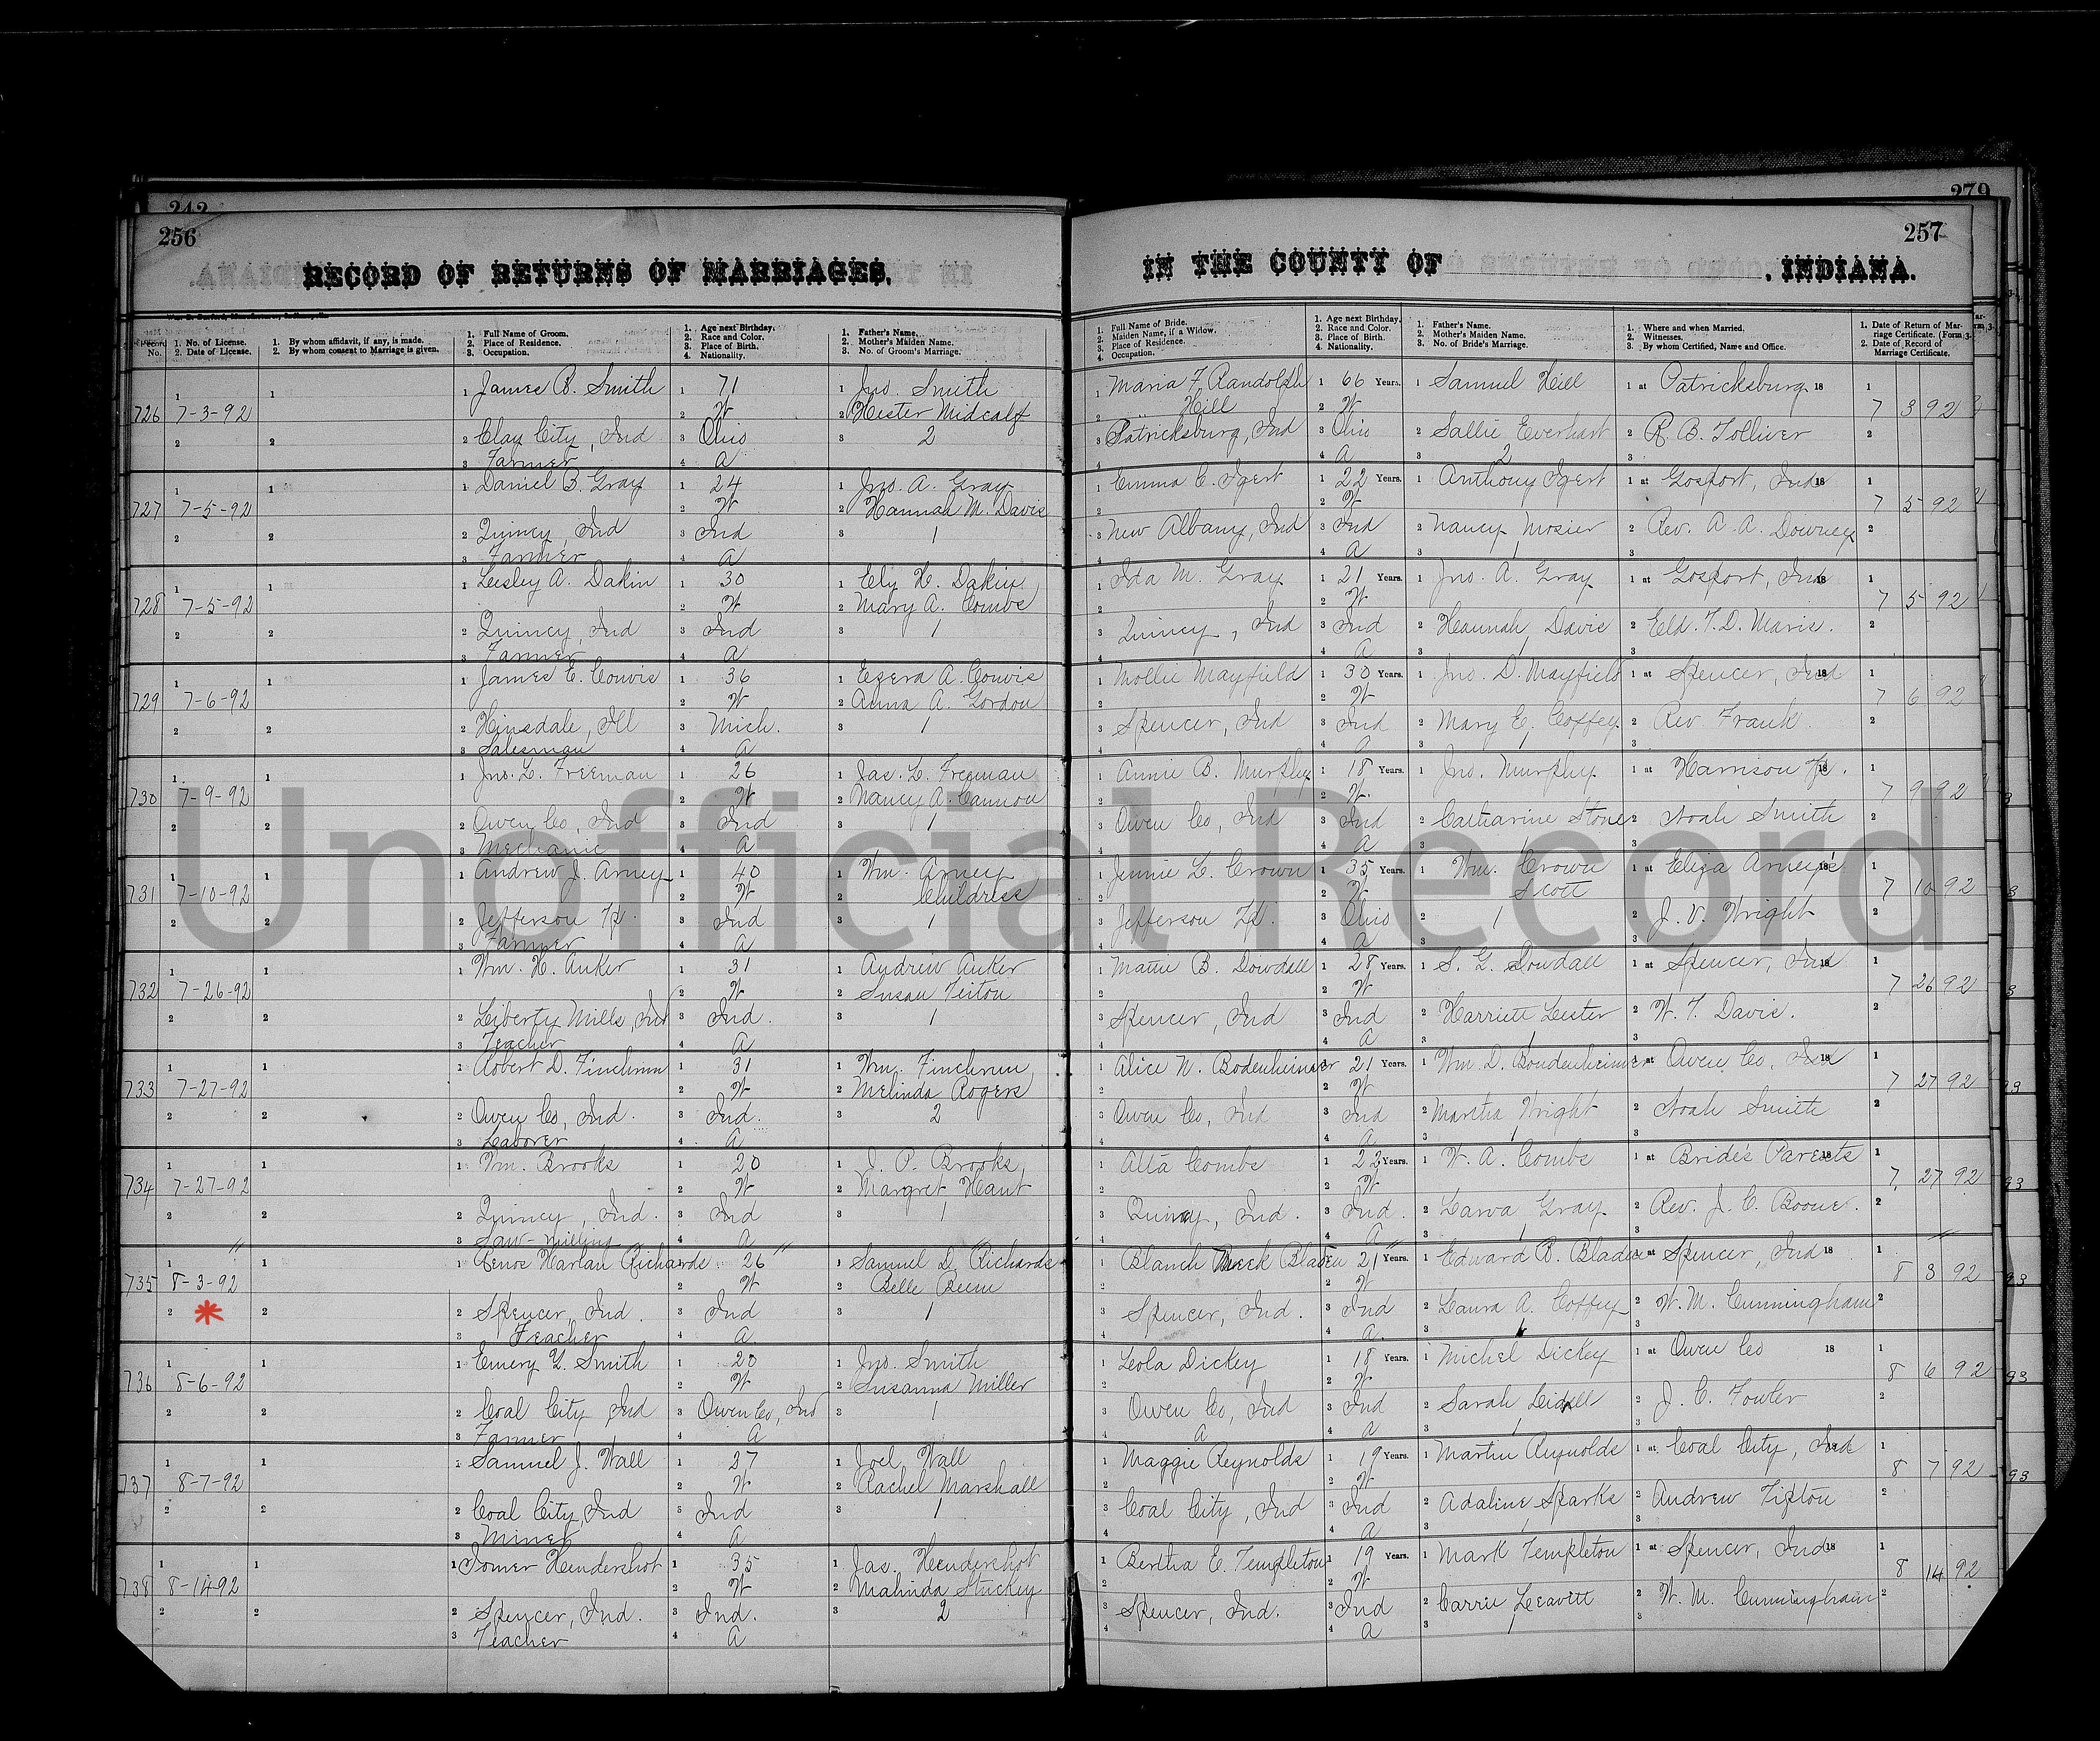 242
279
256
257
RECORD OF RETURNS OF MARRIAGES,
IN THE COUNTY OF , INDIANA.
Record No.
1. No. of License.
2. Date of License.
1. By whom affidavit, if any, is made.
2. By whom consent to Marriage is given.
1. Full Name of Groom.
2. Place of Residence.
3. Occupation.
1. Age next Birthday.
2. Race and Color.
3. Place of Birth.
4. Nationality.
1. Father's Name.
2. Mother's Maiden Name.
3. No. of Groom's Marriage.
1. Full Name of Bride.
2. Maiden Name, if a Widow.
3. Place of Residence.
4. Occupation.
1. Age next Birthday.
2. Race and Color.
3. Place of Birth.
4. Nationality.
1. Father's Name.
2. Mother's Maiden Name.
3. No. of Bride's Marriage.
1. Where and when Married.
2. Witnesses.
3. By whom Certified, Name and Office.
1. Date of Return of Marriage Certificate. (Form 3.)
2. Date of Record of Marriage Certificate.
James B. Smith 71 Jno. Smith Maria F. Randolph 66 Years. Samuel Hill at Patricksburg 18
726 7-3-92 W Hester Midcalf Hill W 7 3 92
Clay City, Ind Ohio 2 Patricksburg, Ind Ohio Sallie Everhart R. B. Tolliver
Farmer A A 2
Daniel B. Gray 24 Jno. A. Gray Emma C. Igert 22 Years. Anthony Igert at Gosport, Ind 18
727 7-5-92 W Hannah M. Davis W 7 5 92
Quincy, Ind Ind 1 New Albany, Ind Ind Nancy Mosier Rev. A. A. Downey
Farmer A A 1
Lesley A. Dakin 30 Ely H. Dakin Ida M. Gray 21 Years. Jno. A. Gray at Gosport, Ind 18
728 7-5-92 W Mary A. Combs W 7 5 92
Quincy, Ind Ind 1 Quincy, Ind Ind Hannah Davis Eld. T. D. Maris.
Farmer A A 1
James E. Couvis 36 Ezera A. Couvis Mollie Mayfield 30 Years. Jno. D. Mayfield at Spencer, Ind 18
729 7-6-92 W Anna A. Gordon W 7 6 92
Hinsdale, Ill Mich. 1 Spencer, Ind Ind Mary E. Coffey Rev. Frank.
Salesman A A 1
Jno. L. Freeman 26 Jas. L. Freeman Annie B. Murphy 18 Years. Jno. Murphy at Harrison Tp. 18
730 7-9-92 W Nancy A. Cannon W 7 9 92
Owen Co, Ind Ind 1 Owen Co, Ind Ind Catharine Stone Noah Smith
Mechanic A A 1
Andrew J. Arney 40 Wm. Arney Jennie L. Crown 35 Years. Wm. Crown at Eliza Arney's 18
731 7-10-92 W Childress W Scott 7 10 92
Jefferson Tp. Ind 1 Jefferson Tp. Ohio 1 J. V. Wright
Farmer A A
Wm. H. Anker 31 Andrew Anker Mattie B. Dowdall 28 Years. S. G. Dowdall at Spencer, Ind 18
732 7-26-92 W Susan W 7 26 92
Liberty Mills, Ind Ind. 1 Spencer, Ind Ind Harriett Lester W. T. Davis.
Teacher A A 1
Robert D. Finchum 31 Wm. Finchum Alice N. Bodenheimer 21 Years. Wm. D. Boudenheimer at Owen Co, Ind 18
733 7-27-92 W Melinda Rogers W 7 27 92
Owen Co, Ind. Ind. 2 Owen Co, Ind Ind Martha Wright Noah Smith
Laborer A A 1
Wm. Brooks 20 J. P. Brooks Alta Combs 22 Years. W. A. Combs at Bride's Parents 18
734 7-27-92 W Margret Haut W 7 27 92
Quincy, Ind. Ind 1 Quincy, Ind. Ind. Larva Gray Rev. J. C. Boone.
Saw-milling A A 1
Renos Harlan Richards 26 Samuel D. Richards Blanch Meek Bladen 21 Years. Edward B. Bladen at Spencer, Ind 18
735 8-3-92 W Belle Beem W 8 3 92
* Spencer, Ind. Ind 1 Spencer, Ind. Ind Laura A. Coffey W. M. Cunningham
Teacher A. A. 1
Emery Y. Smith 20 Jno. Smith Leola Dickey 18 Years. Michel Dickey at Owen Co 18
736 8-6-92 W Susanna Miller W 8 6 92
Coal City, Ind Owen Co, Ind 1 Owen Co, Ind Ind Sarah J. C. Fowler
Farmer A A A 1
Samuel J. Wall 27 Joel Wall Maggie Reynolds 19 Years. Martin Reynolds at Coal City, Ind 18
737 8-7-92 W Rachel Marshall W 8 7 92
Coal City, Ind Ind 1 Coal City, Ind Ind Adaline Sparks Andrew Tipton
Miner A A 1
Homer Hendershot 35 Jas. Hendershot Bertha E. Templeton 19 Years. Mark Templeton at Spencer, Ind 18
738 8-14-92 W Malinda Stuckey W 8 14 92
Spencer, Ind. Ind. 2 Spencer, Ind. Ind Carrie Leavitt W. M. Cunningham
Teacher A A 1
Unofficial Record